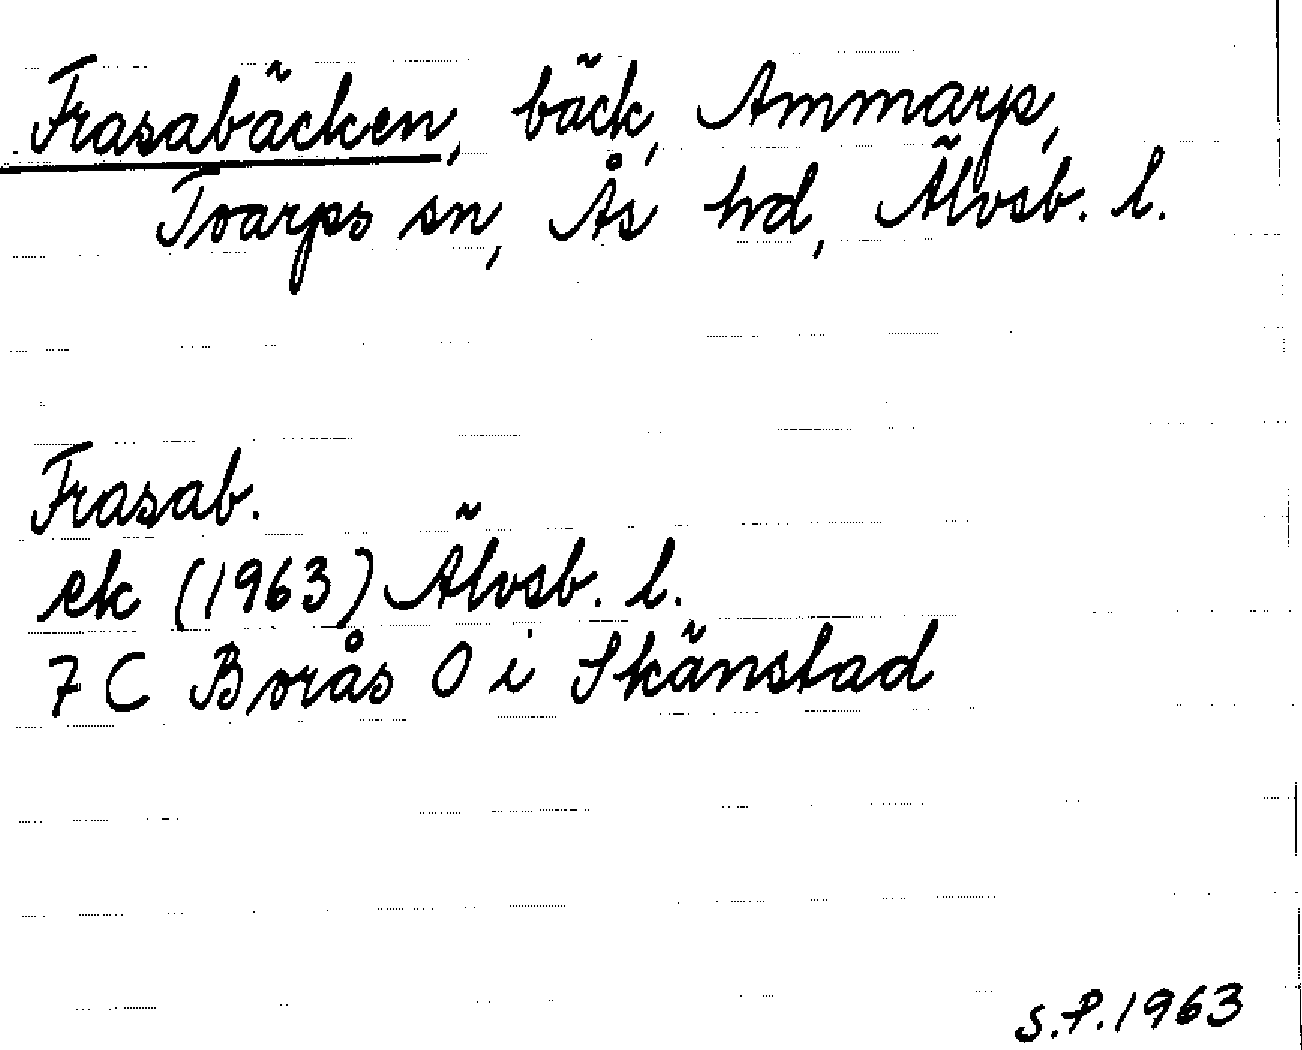 Frasabäcken, bäck, Ammarp,
Toarps sn, Ås hd, Älvsb. l.
Frasab.
ek (1963) Älvsb. l.
7 C Borås O i Skänstad
S.P. 1963